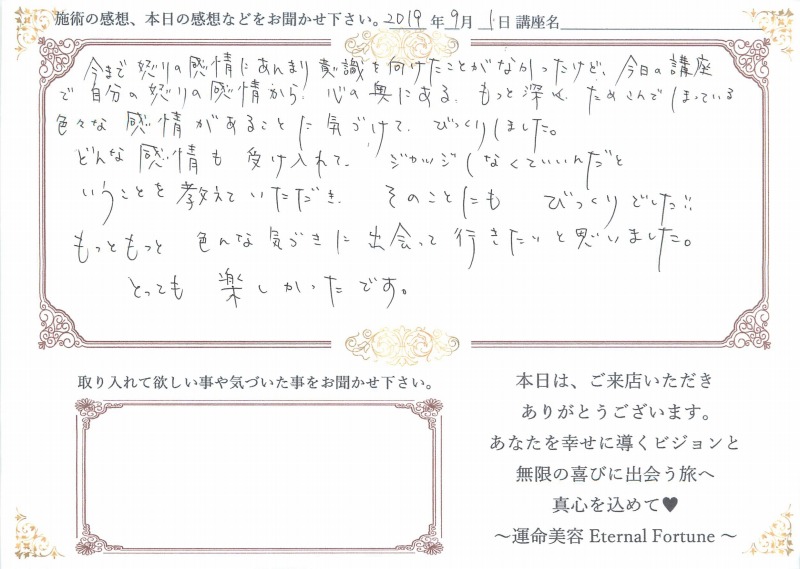 施術の感想、本日の感想などをお聞かせ下さい。2019年9月1日 講座名
今まで怒りの感情にあんまり意識を向けたことがなかったけど、今日の講座
で自分の怒りの感情から、心の奥にある、もっと深く、ためこんでしまっている
色々な感情があることに気づけて、びっくりしました。
どんな感情も受け入れて、ジャッジしなくていいんだと
いうことを教えていただき、そのことにもびっくりでした!!
もっともっと色んな気づきに出会って行きたいと思いました。
とっても楽しかったです。
取り入れて欲しい事や気づいた事をお聞かせ下さい。
本日は、ご来店いただき
ありがとうございます。
あなたを幸せに導くビジョンと
無限の喜びに出会う旅へ
真心を込めて♥
～運命美容 Eternal Fortune ～